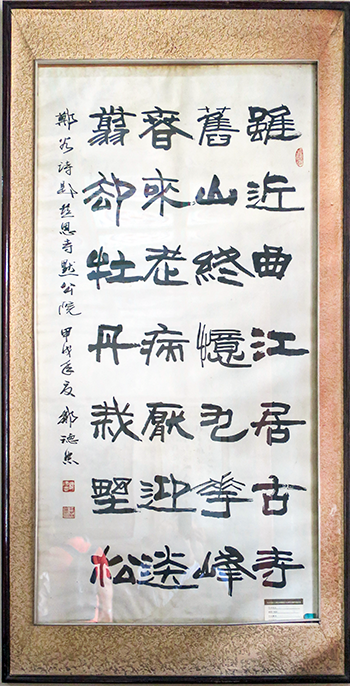 雖近曲江居古寺
舊山終憶九華峰
春來老病厭迎送
翦却牡丹栽野松
鄭谷詩題慈恩寺默公院 甲戌年夏 鄒德忠